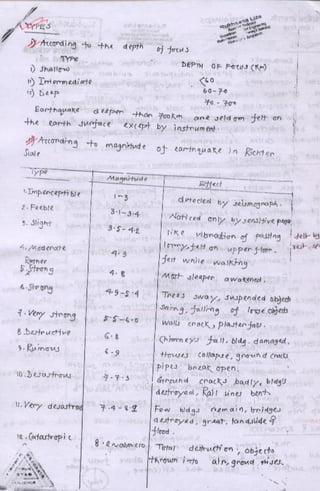 TYPES
1) According to the depth of focus
Type
DEPTH OF FOCUS (Km)
i) Shallow <60
ii) Intermediate 60-70
iii) Deep 70 - 700
Earthquake deeper than 700km are seldom felt on
the earth surface except by instrument
According to magnitude of earthquake in Richter
Scale
Type Magnitude Effect
1. Imperceptible 1-3 detected by seismograph.
2. Feeble 3.1-3.4 Noticed only by sensitive
3. Slight 3.5-4.2 like vibration of passing
lorry, felt on upper floor.
4. Moderate 4.3 felt while walking
5. Strong 4.8 Most sleeper awakened.
6. Strong 4.9-5.4 Trees sway, suspended objects
swing, falling of loose objects
7. Very strong 5.5-6.0 walls crack, plaster falls.
8. Destructive 6.8 Chimneys fall, bldg. damaged,
9. Ruinous 6.9 Houses collapse, ground cracks
pipes break open.
10. Disastrous 7-7.3 Ground cracks badly, bldg's
destroyed, Rail lines bent.
11. Very desastros 7.4-8.1 Few bldgs remain, bridges
destroyed, great landslide &
flood.
12. Catastropic 8.1 Total destruction, objects
thrown into air, ground rises.